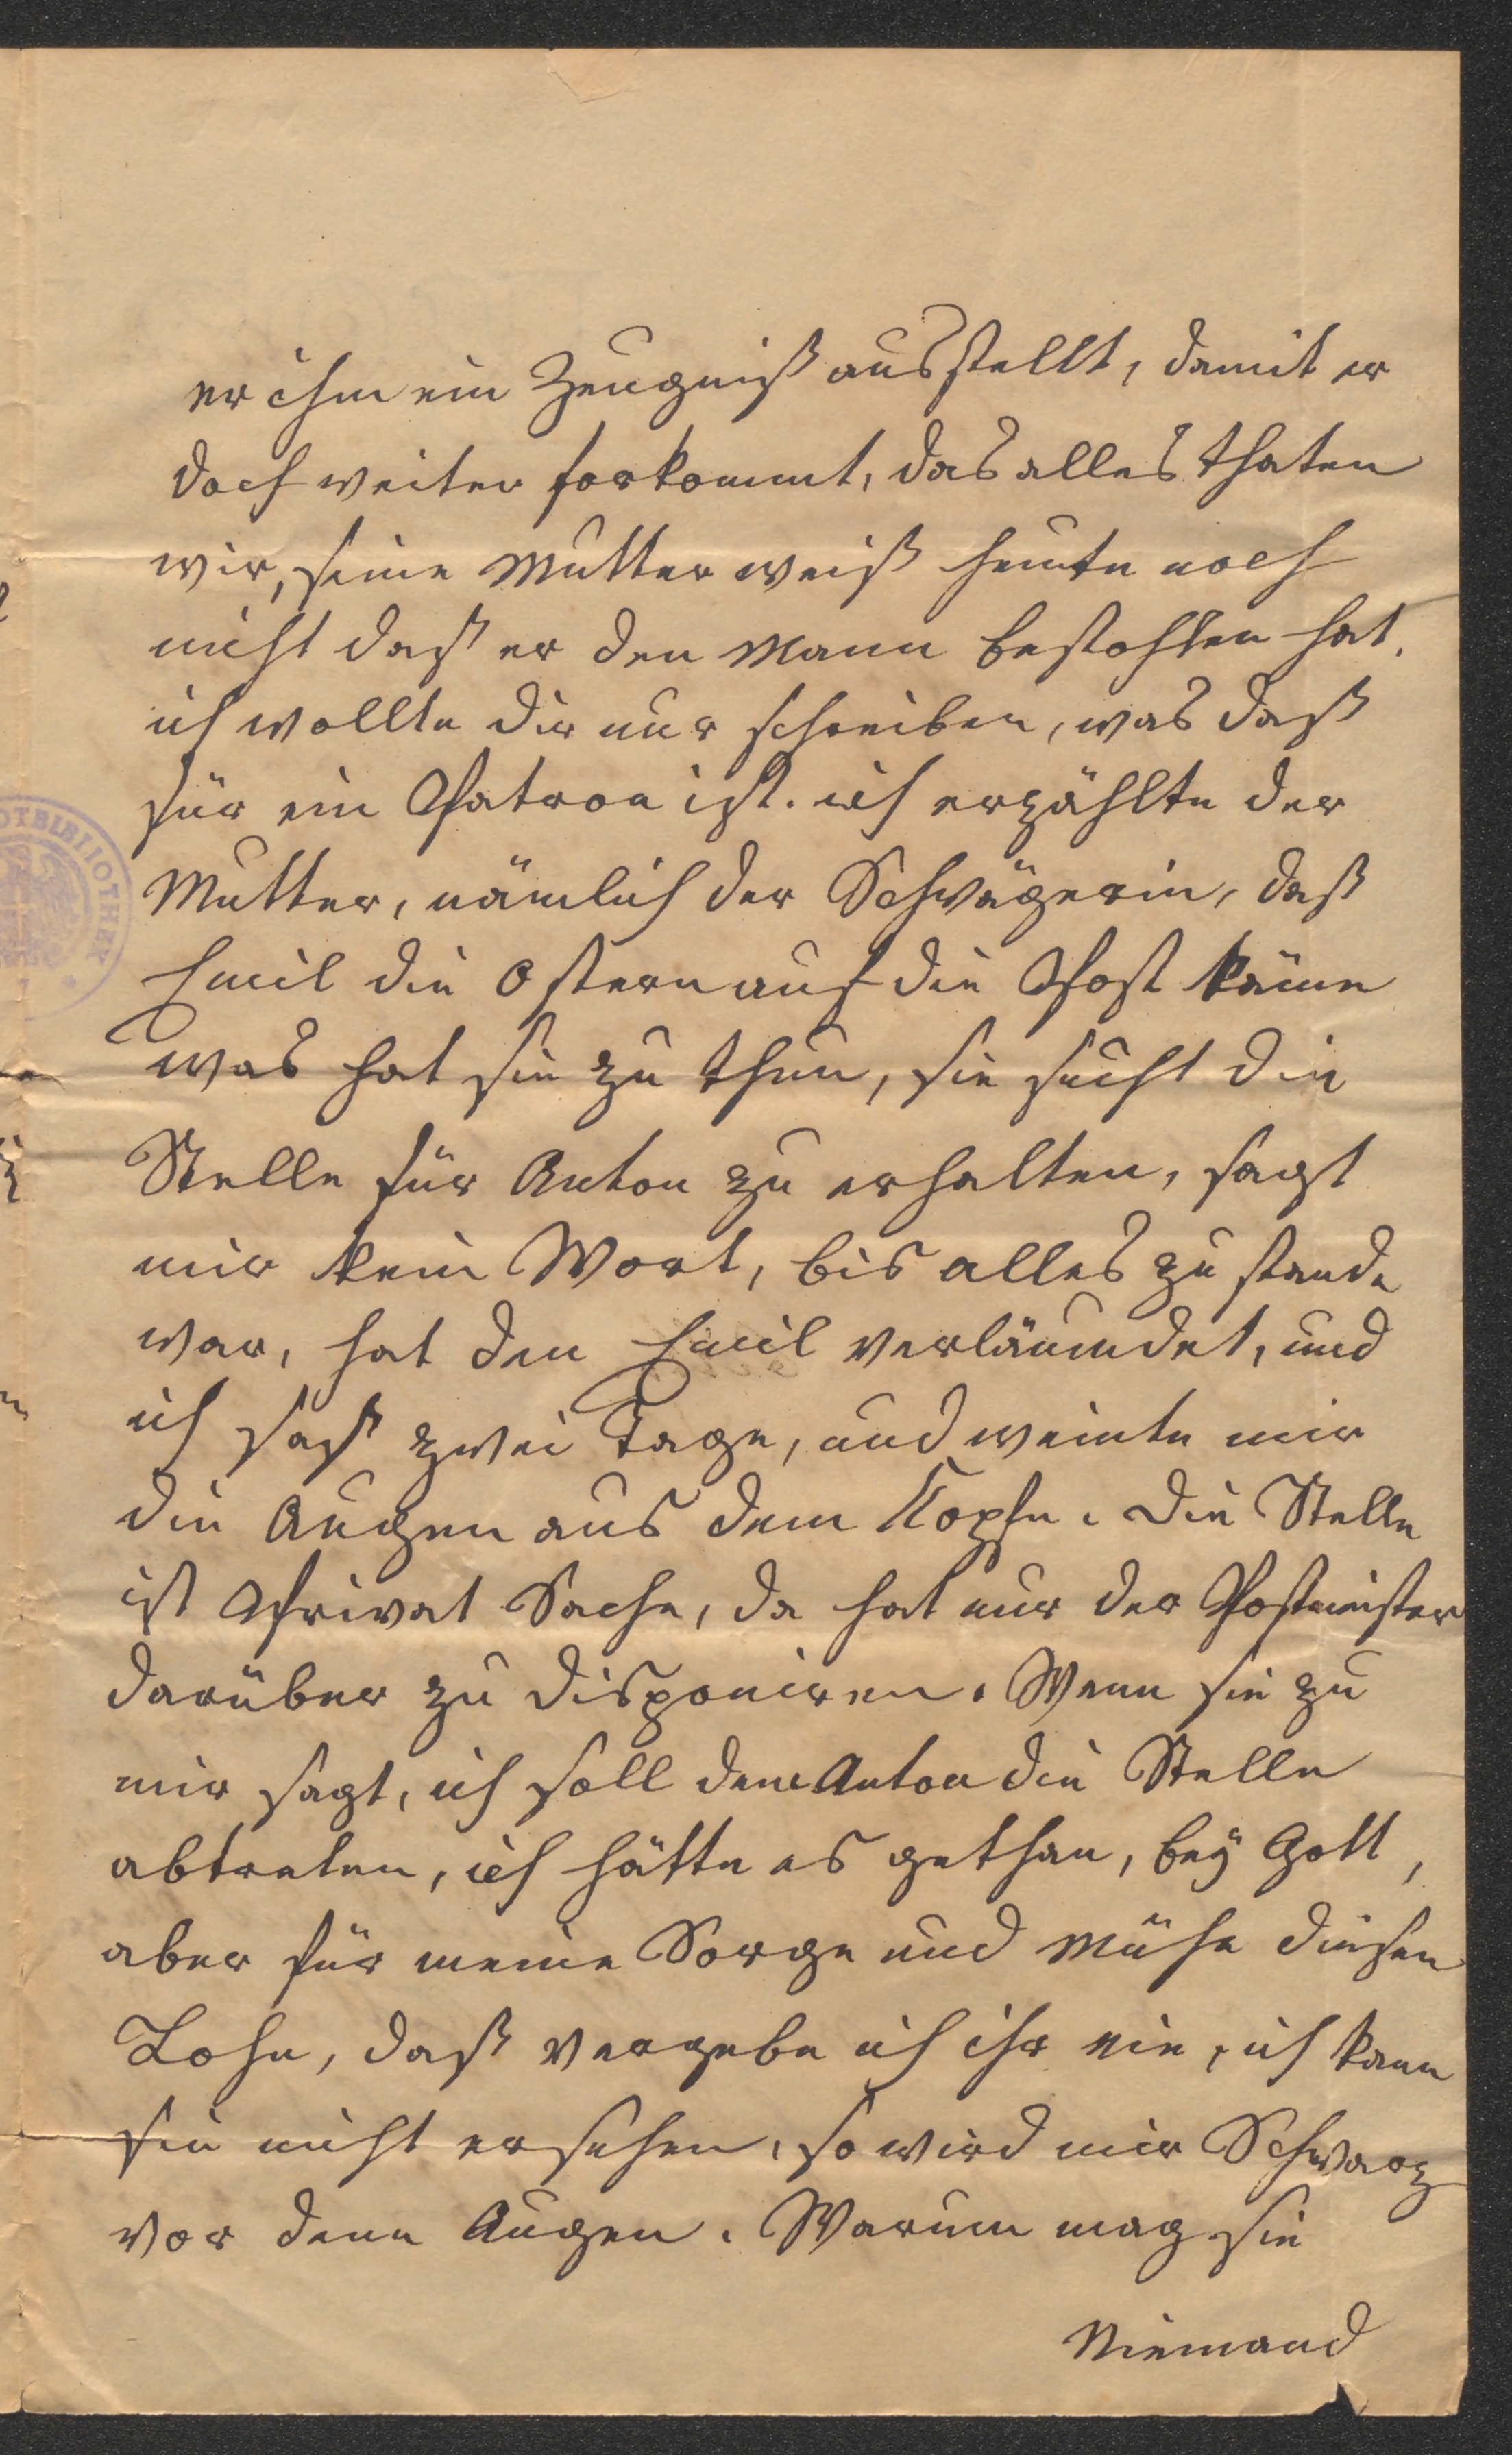 er ihm ein Zeugniß ausstellt, damit er
doch weiter forkommt, das alles thaten
wir, seine Mutter weiß heute noch
nicht daß er den Mann bestohlen hat.
ich wollte dir nur schreiben, was daß
für ein Patron ist. ich erzählte der
Mutter, nämlich der Schwägerin, daß
Emil die Ostern auf die Post käme
was hat sie zu thun, sie sucht die
Stelle für Anton zu erhalten, sagt
mir kein Wort, bis alles zu stande
war, hat den Emil verläumdet, und
ich saß zwei Tage, und weinte mir
die Augen aus dem Kopfe. Die Stelle
ist Privat Sache, da hat nur der Postmeister
darüber zu disponiren. Wenn sie zu
mir sagt, ich soll dem Anton die Stelle
abtreten, ich hätte es gethan, beÿ Gott,
aber für meine Sorge und Mühe diesen
Lohn, daß vergebe ich ihr nie, ich kann
sie nicht ersehen, so wird mir Schwarz
vor denn Augen. Warum mag sie
Niemand